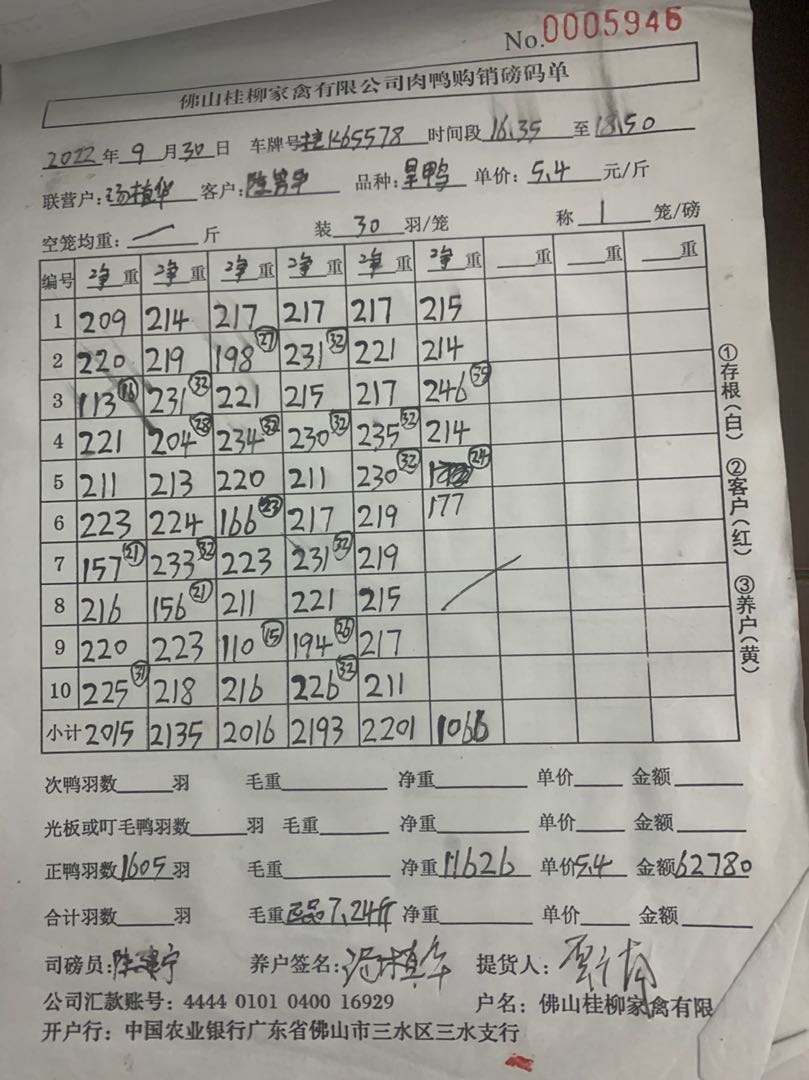 No.0005946
佛山桂柳家禽有限公司肉鸭购销磅码单
2022年9月30日 车牌号桂K65578 时间段16.35至18.50
联营户:汤植华 客户: 品种:旱鸭 单价:5.4元/斤
空笼均重:一斤 装30羽/笼 称1笼/磅
编号 净重 净重 净重 净重 净重 净重 重 重 重
1 209 214 217 217 217 215
2 220 219 198㉗ 231㉜ 221 214
3 113⑯ 231㉜ 221 215 217 246㉟
4 221 204㉘ 234㉜ 230㉜ 235㉜ 214
5 211 213 220 211 230㉜ ㉔
6 223 224 166㉓ 217 219 177
7 157㉑ 233㉜ 223 231㉜ 219
8 216 156㉑ 211 221 215
9 220 223 110⑮ 194㉖ 217
10 225㉛ 218 216 226㉜ 211
小计 2015 2135 2016 2193 2201 1066
①存根(白) ②客户(红) ③养户(黄)
次鸭羽数 羽 毛重 净重 单价 金额
光板或叮毛鸭羽数 羽 毛重 净重 单价 金额
正鸭羽数1605羽 毛重 净重11626 单价5.4 金额62780
合计羽数 羽 毛重正品7.24斤 净重 单价 金额
司磅员:陈建宁 养户签名:汤植华 提货人:
公司汇款账号:4444 0101 0400 16929 户名:佛山桂柳家禽有限
开户行:中国农业银行广东省佛山市三水区三水支行